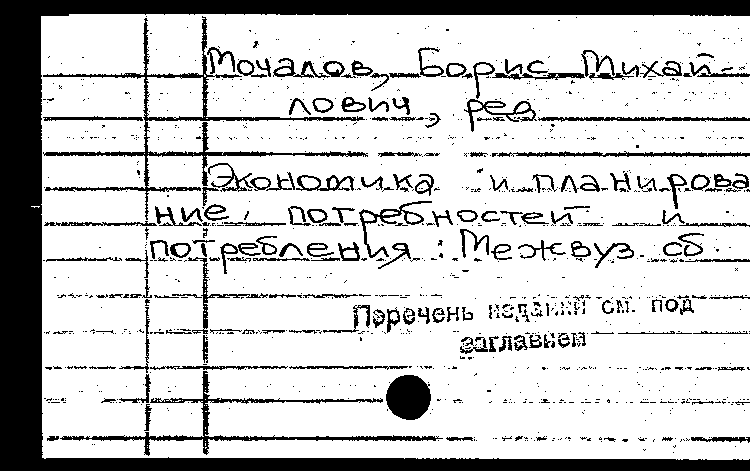 Мочалов, Борис Михай-
лович, ред
Экономика и планирова
ние, потребностей и
потребления : Межвуз. сб.
Перечень изданий см. под
заглавием